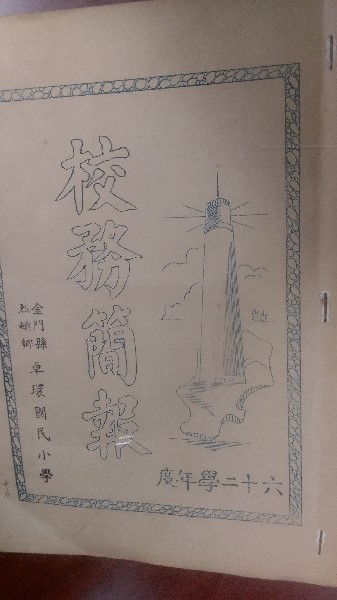 六十二學年度
校務簡報
金門縣
烈嶼鄉
卓環國民小學